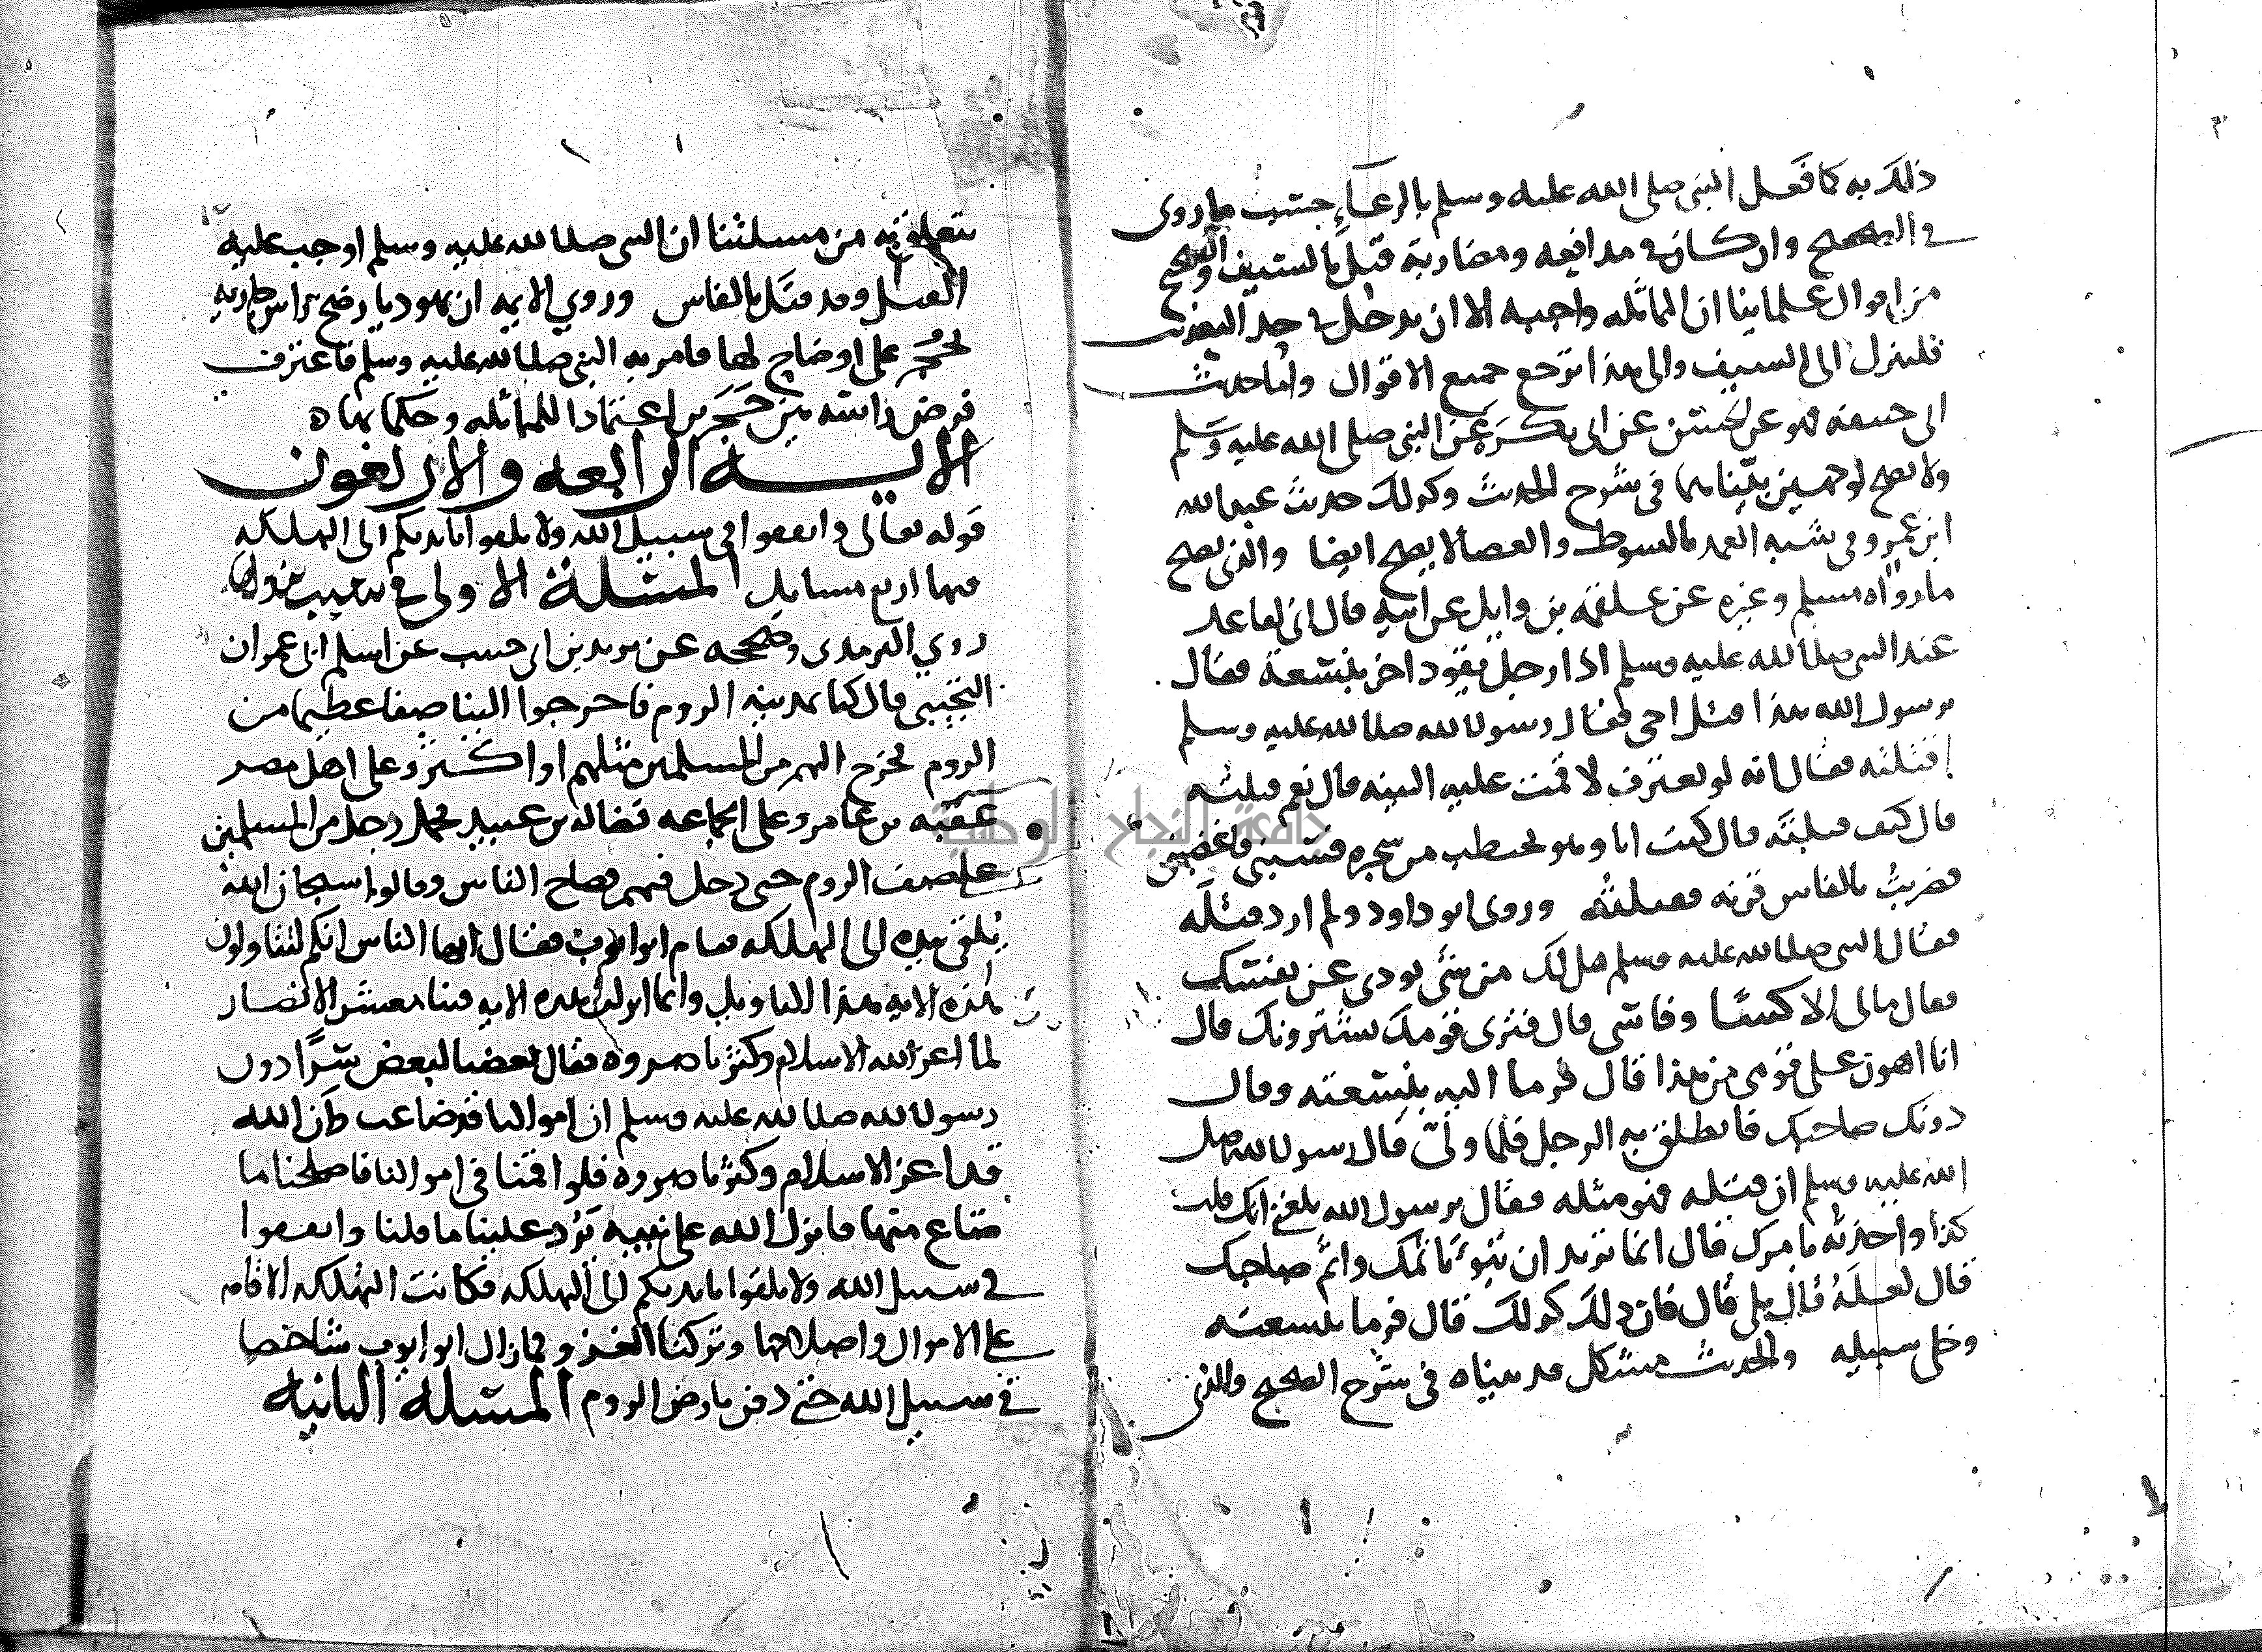 ذلك به كما فعل النبي صلى الله عليه وسلم بالرعاء حسب ما روى
في الصحيح وان كان في مدافعه ومضاربة قتل بالسيف والصحيح
من اقوال علماينا ان المماثله واجبه الا ان يدخل في حد التعذيب
فلينزل الى السيف والى هذا ترجع جميع الاقوال واما حديث
ابي حنيفه فهو عن الحسن عن ابي بكرة عن النبي صلى الله عليه وسلم
ولا يصح لوجهين بيناهما في شرح الحديث وكذلك حديث عبدالله
ابن عمرو في شبه العمد بالسوط والعصا لا يصح ايضا والذي يصح
ما رواه مسلم وغيره عن علقمه بن وايل عن ابيه قال اني لقاعد
عند النبي صلى الله عليه وسلم اذا رجل يقود اخر بنسعة فقال
يرسول الله هذا قتل اخي فقال رسول الله صلى الله عليه وسلم
اقتلته فقال انه لو لم يعترف لاقمت عليه البينه قال نعم قتلته
قال كيف قتلته قال كنت انا وهو نحتطب من شجره فسبني فاغضبني
فضربت بالفاس قرنه فقتلته وروى ابو داود ولم ارد قتله
فقال النبي صلى الله عليه وسلم هل لك من شي تودي عن نفسك
فقال مالي الا كسا وفاسي قال فترى قومك يشترونك قال
انا اهون على قومي من هذا قال فرما اليه بنسعته وقال
دونك صاحبك فانطلق به الرجل فلما ولى قال رسول الله صلى
الله عليه وسلم ان قتله فهو مثله فقال يرسول الله بلغني انك قلت
كذا واخذته بامرك قال انما تريد ان تبوء باثمك واثم صاحبك
قال لعله قال بلى قال فان ذلك كذلك قال فرما بنسعته
وخلى سبيله والحديث مشكل قد بيناه في شرح الصحيح والذي
يتعلق به من مسلتنا ان النبي صلى الله عليه وسلم اوجب عليه
القتل وقد قتل بالفاس وروي الايمه ان يهوديا رضخ راس جاريه
بحجر على اوضاح لها فامر به النبي صلى الله عليه وسلم فاعترف
فرض راسه بين حجرين اعتمادا للمماثله وحكما بها ه
الايه الرابعه والاربعون
قوله تعالى وانفقوا في سبيل الله ولا تلقوا بايديكم الى التهلكه
فيها اربع مسايل المسئلة الاولى في سبب نزولها
روي الترمذي وصححه عن يزيد بن ابي حبيب عن اسلم ابي عمران
التجيبي قال كنا بمدينه الروم فاخرجوا الينا صفا عظيما من
الروم فخرج اليهم من المسلمين مثلهم او اكثر وعلى اهل مصر
عقبه بن عامر وعلى الجماعه فضاله بن عبيد فحمل رجل من المسلمين
على صف الروم حتى دخل فيهم فصاح الناس وقالوا سبحان الله
يلقي بيده الى التهلكه فقام ابو ايوب فقال ايها الناس انكم لتتاولون
هذه الايه هذا التاويل وانما انزلت هذه الايه فينا معشر الانصار
لما اعز الله الاسلام وكثر ناصروه فقال بعضنا لبعض سرا دون
رسول الله صلى الله عليه وسلم ان اموالنا قد ضاعت وان الله
قد اعز الاسلام وكثر ناصروه فلو اقمنا في اموالنا فاصلحنا ما
ضاع منها فانزل الله على نبيه يرد علينا ما قلنا وانفقوا
في سبيل الله ولا تلقوا بايديكم الى التهلكه فكانت التهلكه الاقامه
على الاموال واصلاحها وتركنا الغزو فما زال ابو ايوب شاخصا
في سبيل الله حتى دفن بارض الروم المسله الثانيه
جامعة النجاح الوطنية